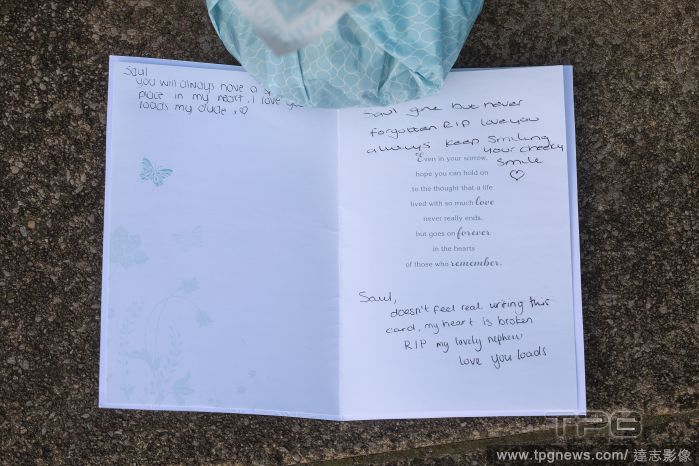 Saul
you will always have a
place in my heart. I love you
loads my dude, ♡
Saul gne but never
forgotten RIP love you
always keep smiling
your cheeky
smile
♡
Even in your sorrow,
hope you can hold on
to the thought that a life
lived with so much love
never really ends,
but goes on forever
in the hearts
of those who remember.
Saul,
doesn't feel real writing this
card, my heart is broken
RIP my lovely nephew
love you loads
TPG
www.tpgnews.com/達志影像